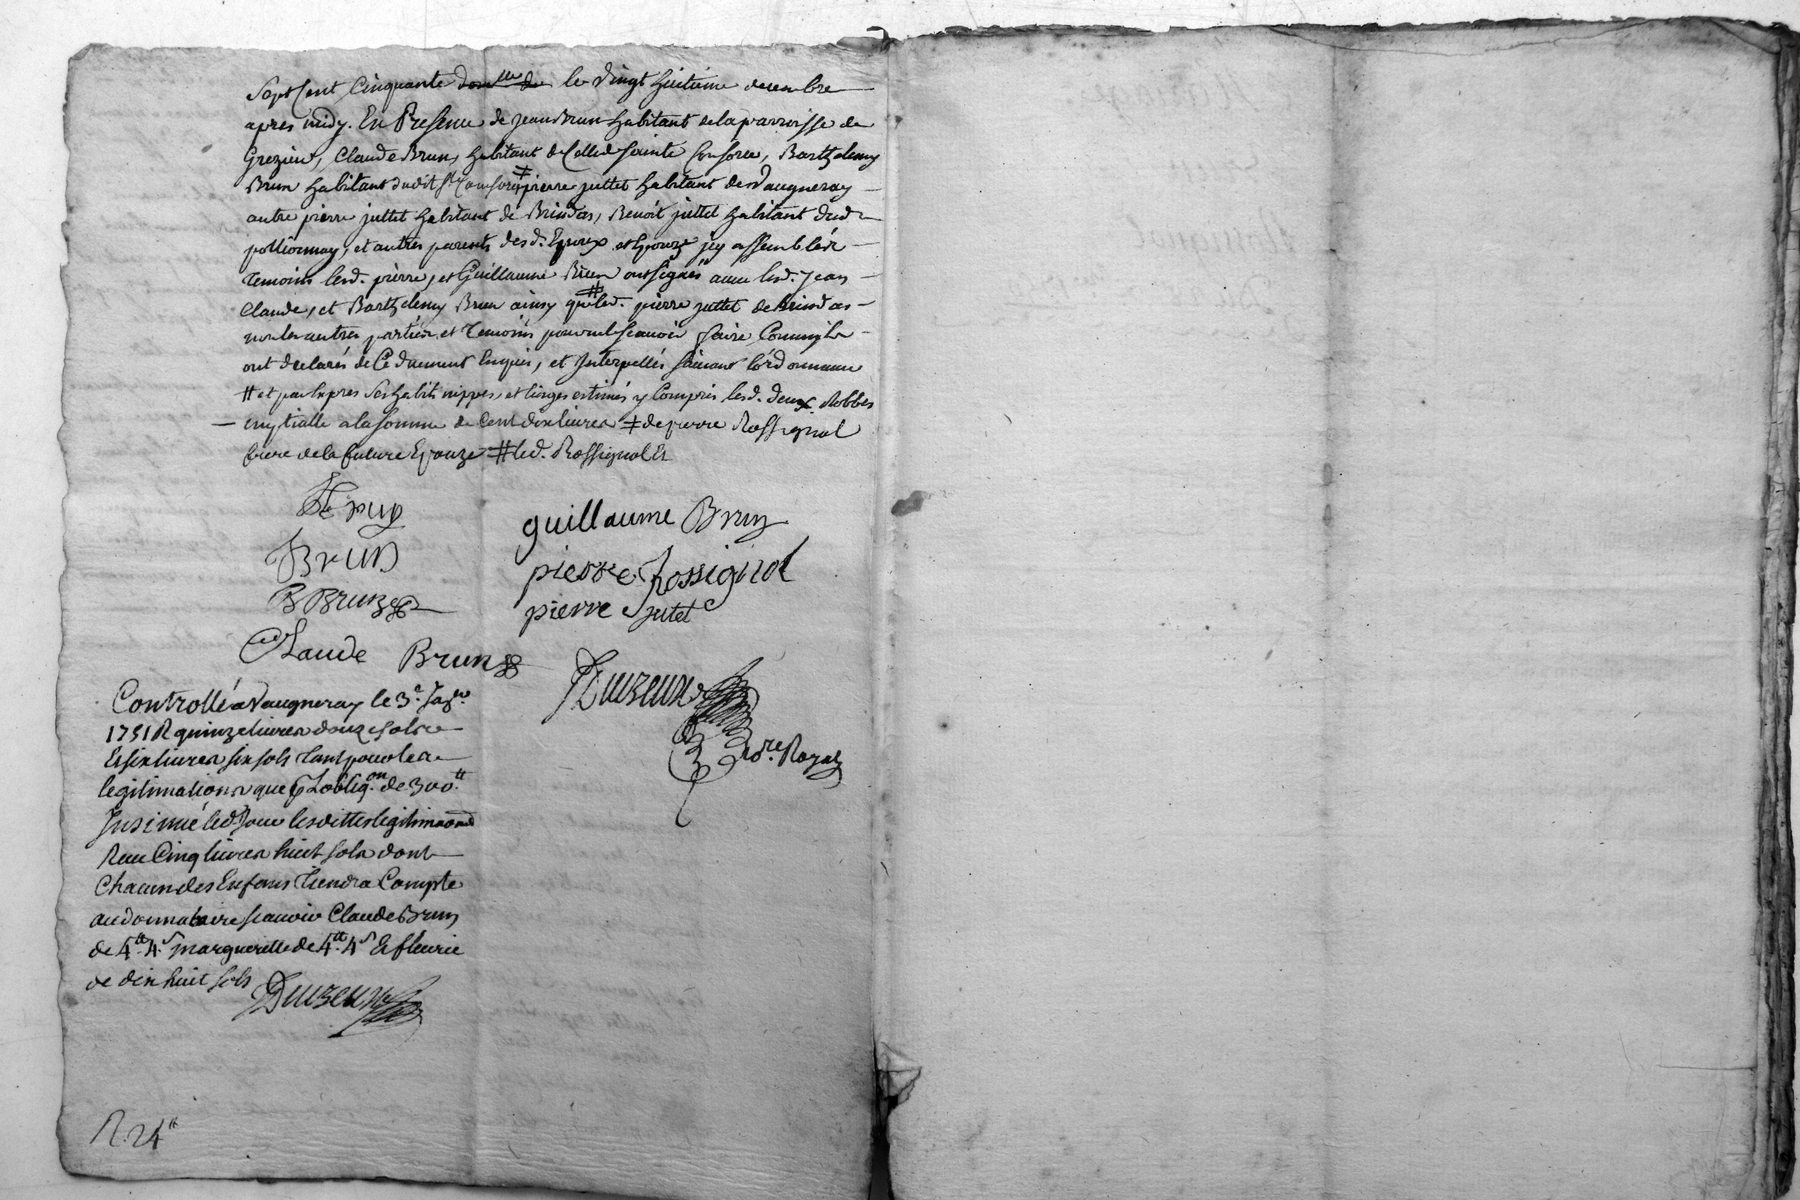 Sept Cent Cinquante le vingt huitieme decembre
apres midy. En Presence de Jean Brun habitant de la parroisse de
Grezieu, Claude Brun, habitant de Celle de Sainte Consorce, Barthelemy
Brun habitant dudit Ste Consorce ⧧ pierre juttet habitant de Vaugneray
autre pierre juttet habitant de Brindas, Benoit juttet habitant dud.
pollionnay, et autres parents desd. Epoux et Epouze jcy assemblés
temoins lesd. pierre, et Guillaume Brun ont signés avec lesd. Jean
Claude, et Barthelemy Brun ainsy que # led. pierre juttet de Brindas
non les autres parties et temoins pour ne scavoir ecrire Comm'ils
ont declarés de Ce duement Enquis, et Interpellés suivant l'ordonnance
# et par Expres ses habits nippes, et linges estimés y Compris lesd. deux Robbes
a la somme de Cent dix livres ⧧ de pierre Rossignol
frere de la future Epouze # led. Rossignol Et
Brun
B Brun
Claude Brun
guillaume Brun
pierre Rossignol
pierre jutet
Duizeux
Nore. Royal
Controllé a Vaugneray le 3e. Janer.
1751 R quinze livres douze sols
Et six livres six sols tant pour les
legitimations que p. L'obligon. de 300.tt
Insinué led. Jour les dittes legitimaons
Recu Cinq livres huit sols dont
Chacun des Enfans tiendra Compte
au donnataire scavoir Claude Brun
de 4.tt 4.s margueritte de 4.tt 4s Et fleurie
de dix huit sols
Duizeux
R. 24tt